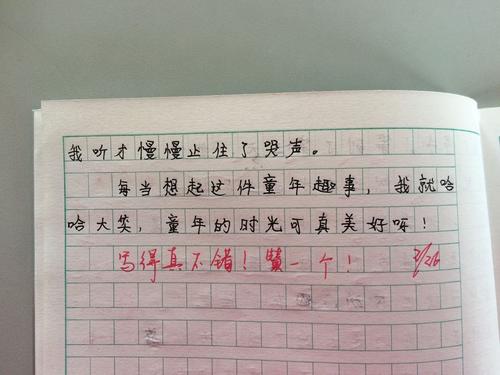 我听才慢慢止住了哭声。
每当想起过件童年趣事，我就哈
哈大笑，童年的时光可真美好呀！
写得真不错！赞一个！